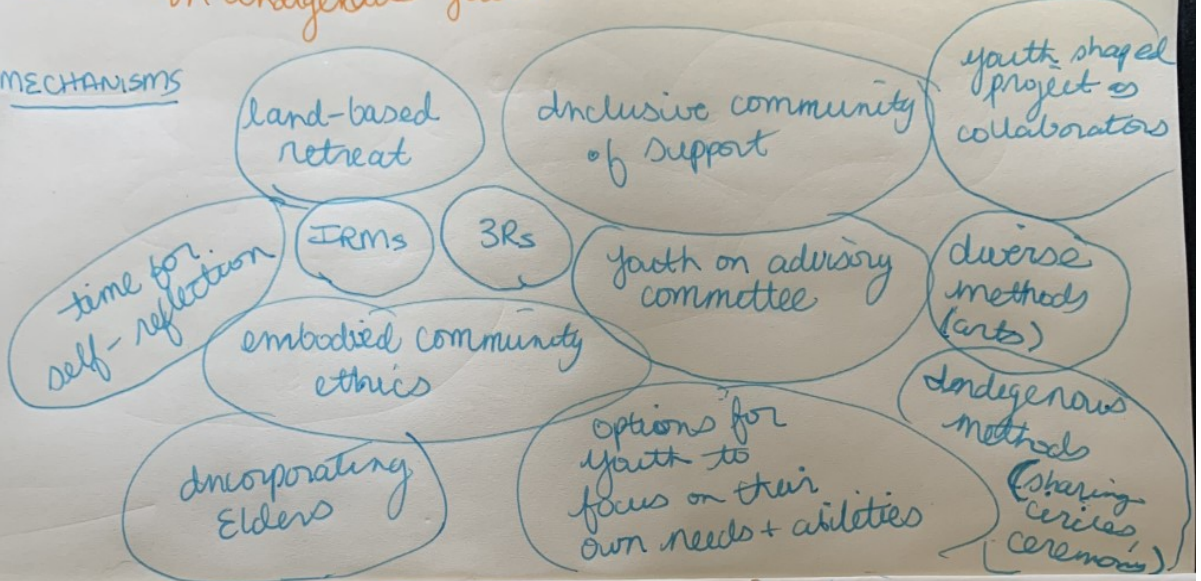 MECHANISMS
land-based
retreat
Inclusive community
of support
youth shaped
project as
collaborators
time for
self-reflection
IRMs
3Rs
Youth on advisory
committee
diverse
methods
(arts)
embodied community
ethics
Indigenous
methods
(sharing
circles,
ceremony)
Incorporating
Elders
options for
youth to
focus on their
own needs + abilities